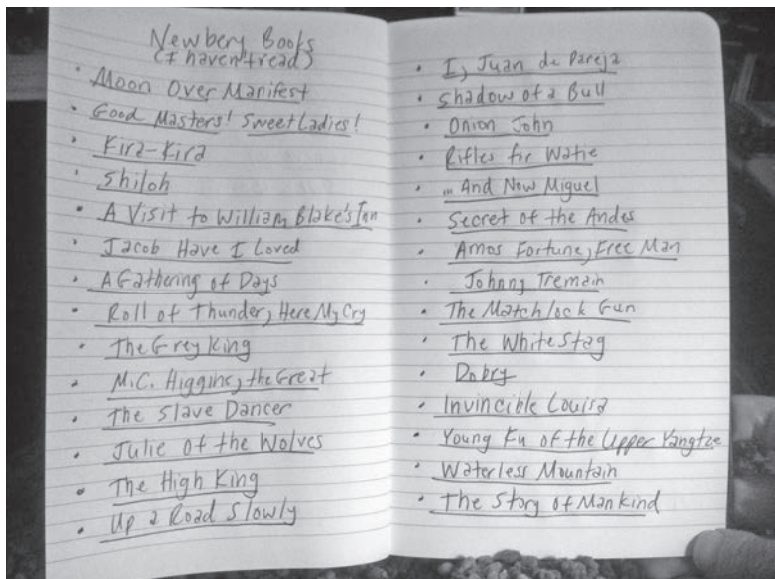 Newbery Books
(I haven't read)
• Moon Over Manifest
• Good Masters! Sweet Ladies!
• Kira-Kira
• Shiloh
• A Visit to William Blake's Inn
• Jacob Have I Loved
• A Gathering of Days
• Roll of Thunder, Here My Cry
• The Grey King
• M.C. Higgins, the Great
• The Slave Dancer
• Julie of the Wolves
• The High King
• Up a Road Slowly
• I, Juan de Pareja
• Shadow of a Bull
• Onion John
• Rifles for Watie
• ...And Now Miguel
• Secret of the Andes
• Amos Fortune, Free Man
• Johnny Tremain
• The Matchlock Gun
• The White Stag
• Dobry
• Invincible Louisa
• Young Fu of the Upper Yangtze
• Waterless Mountain
• The Story of Mankind